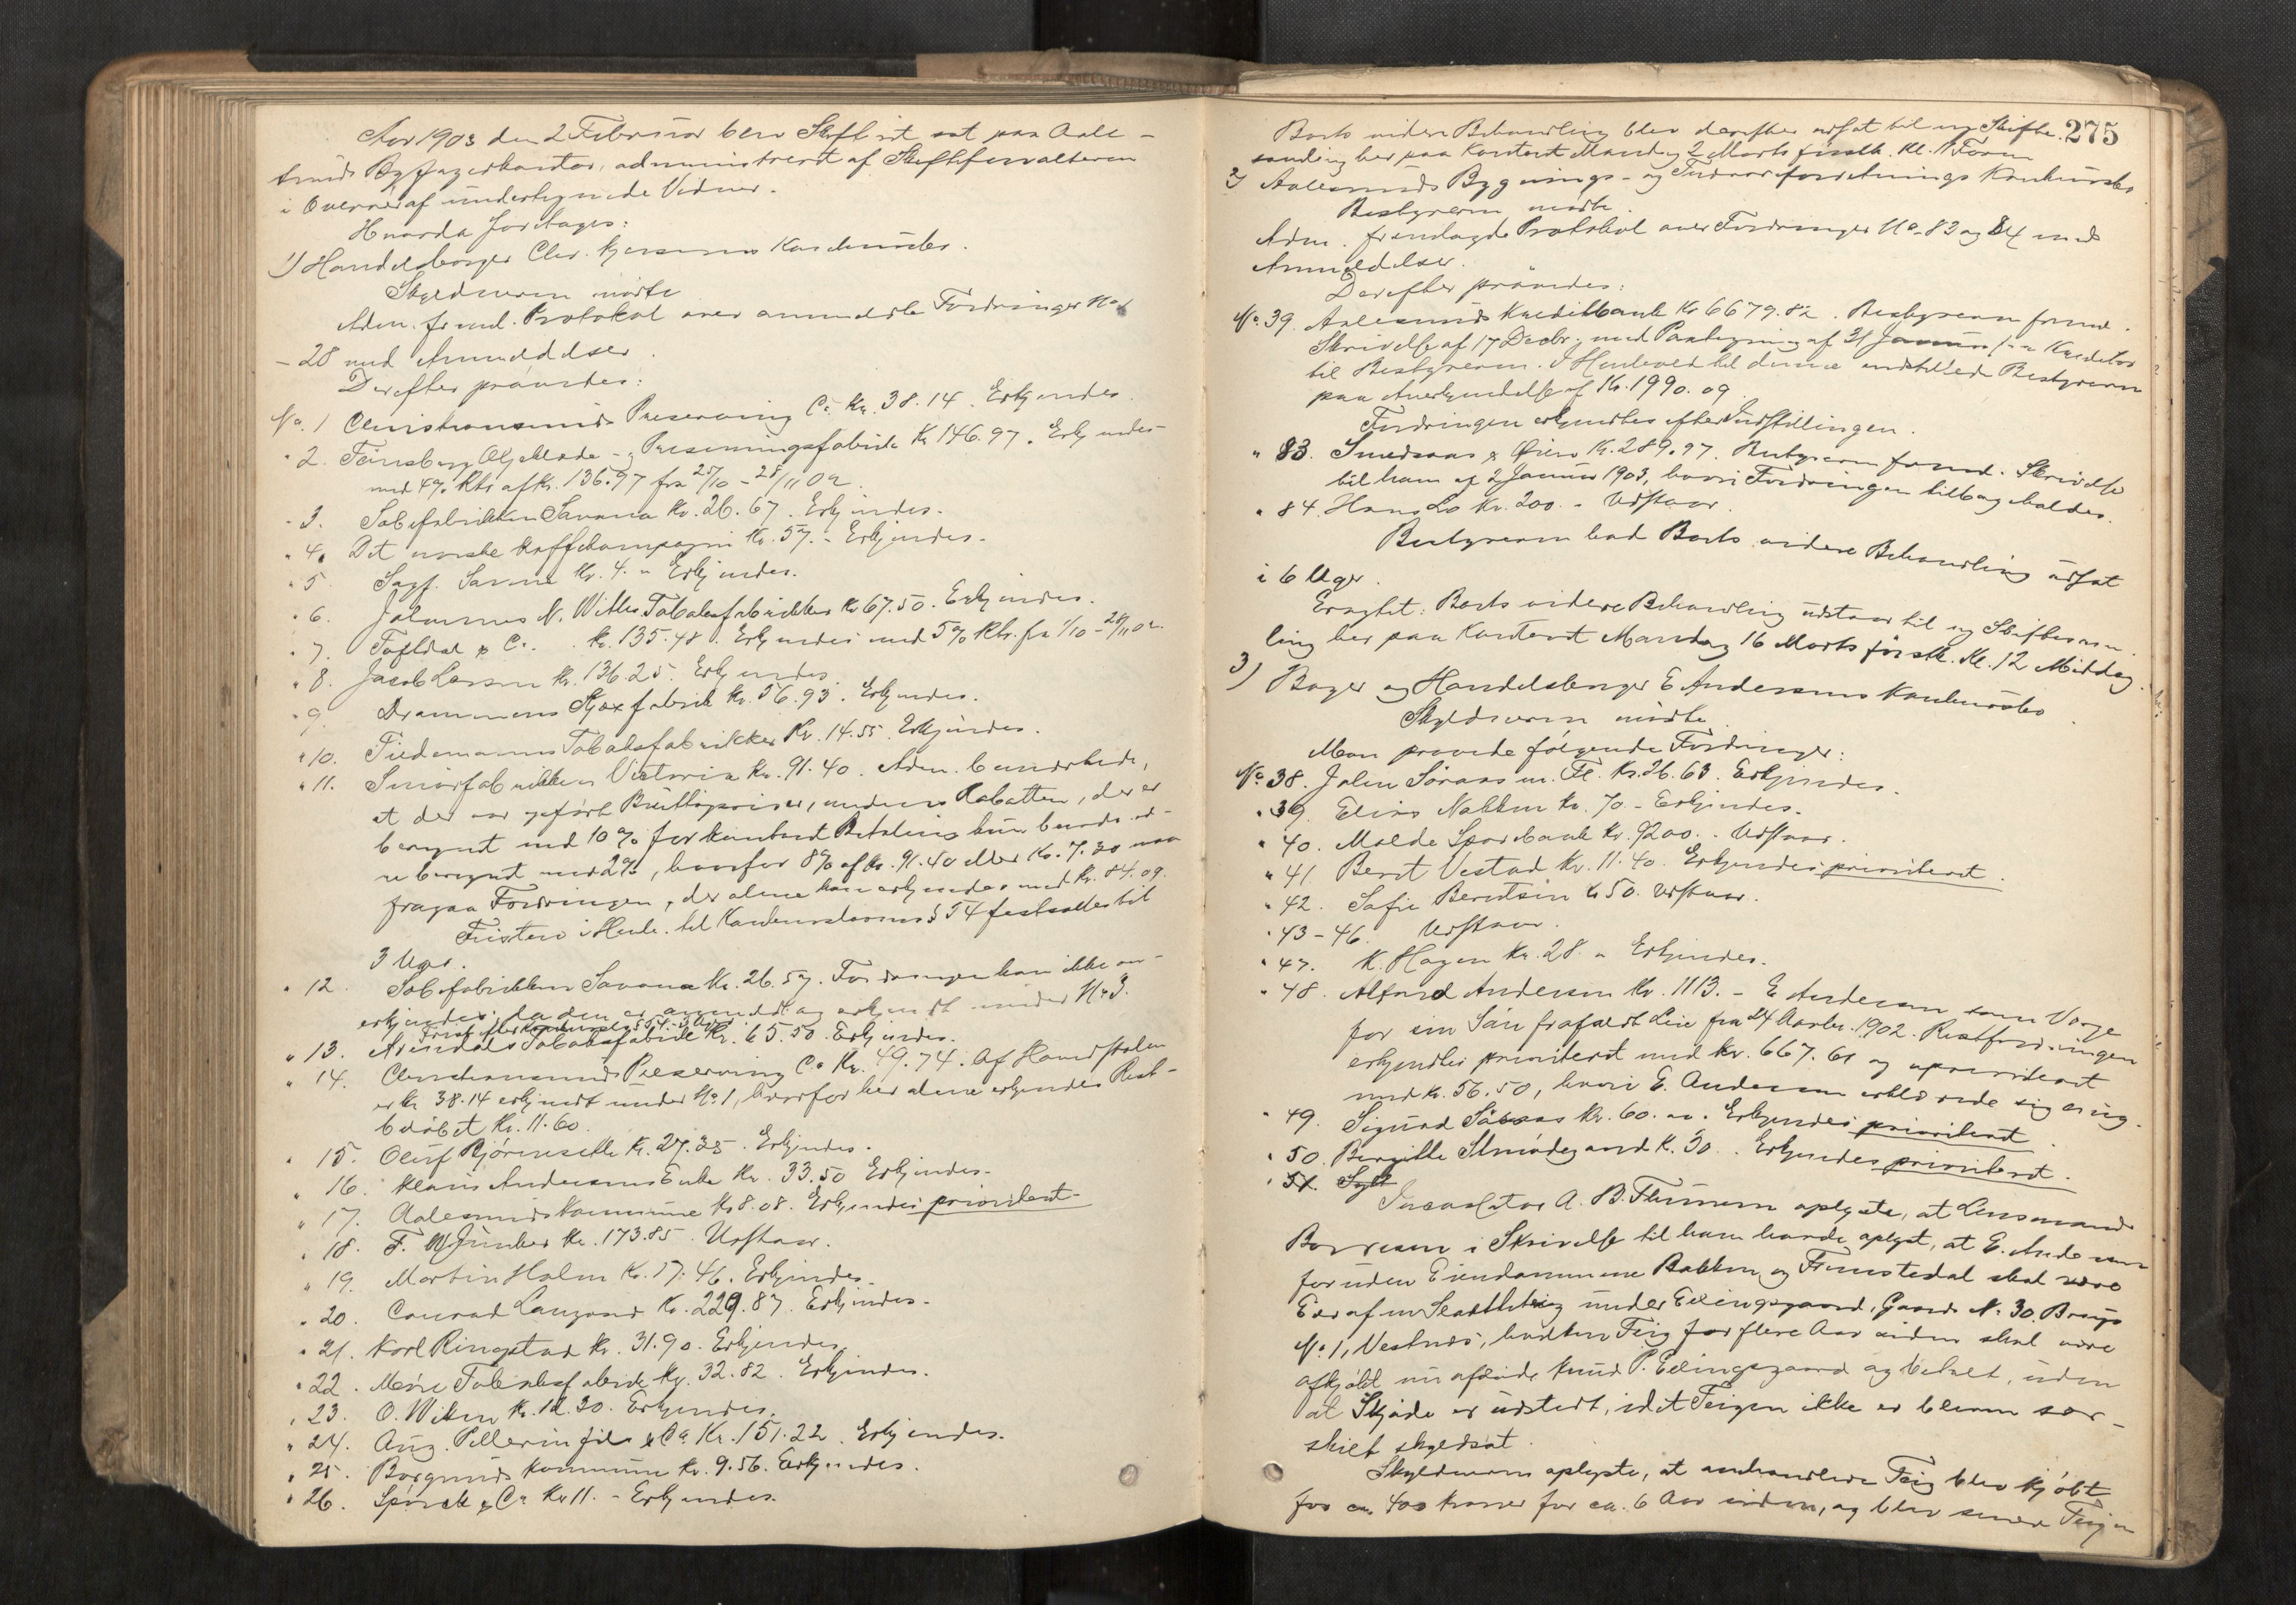 Aar 1903 den 2 Februar blev Skifteret sat paa Aale-
sunds Byfogedkontor, administreret af Skifteforvalteren
i Overvær af undertegnede Vidner.
Hvorda foretages:
1) Handelsborger Chr. Konkursbo.
Skyldneren mødte
Adm. freml. Protokol over anmeldte Fordringer No 1
- 28 med Anmeldelser.
Derefter prøvedes:
No. 1 Christianssunds Preserving Co. Kr. 38.14. Erkjendes.
" 2. Tønsberg Oljeklæde- og Presenningsfabrik Kr 146.97. Erkjendes
med 4% Rtr af Kr. 136.97 fra 25/10 - 28/11 02.
" 3. Sæbefabrikken Savona Kr. 26.67. Erkjendes.
" 4. Det norske Kaffekompagni Kr. 57.- Erkjendes.
" 5. Sagf. Kr. 4. " Erkjendes.
" 6. Johannes N. Wittes Tobaksfabrikker Kr 67.50. Erkjendes.
" 7. Toftdal & Co. Kr. 135.48. Erkjendes med 5% Rtr. fra 1/10 - 28/11 02.
" 8. Jacob Larsen Kr. 136.25. Erkjendes.
" 9. Drammens Skoxfabrik Kr. 56.93. Erkjendes.
" 10. Tiedemanns Tobaksfabrikker Kr. 14.55. Erkjendes.
" 11. Smørfabrikken Victoria Kr. 91.40. Adm. bemærkede,
at der var opført Bruttopriser, medens Rabatten, der er
beregnet med 10% for kontant Betaling kun burde væ-
re beregnet med 2%, hvorfor 8% af Kr. 91.40 eller Kr. 7.30 maa
fragaa Fordringen, der alene kan erkjendes med Kr. 84.09.
Fristen i Henh. til Konkurslovens § 54 fastsattes til
3 Uger.
" 12. Sæbefabrikken Savona Kr. 26.57. Fordringen kan ikke an-
erkjendes, da den er anmeldt og erkjendt under No 3.
Frist efter Konkursl. § 54 - 3 Uger.
" 13. Arendals Tobaksfabrik Kr. 65.50. Erkjendes.
" 14. Christianssunds Preserving Co Kr. 49.74. Af Hovedstolen
er Kr. 38.14 erkjendt under No 1, hvorfor her alene erkjendes Rest-
beløbet Kr. 11.60.
" 15. Oluf Bjørnseth Kr. 27.35. Erkjendes.
" 16. Klaus Andersens Enke Kr. 33.50 Erkjendes.
" 17. Aalesunds Kommune Kr 8.08. Erkjendes prioriteret
" 18. F. W. Kr. 173.85. Udstaar.
" 19. Martin Holm Kr. 17.46. Erkjendes.
" 20. Conrad Langaard Kr. 229.87. Erkjendes.
" 21. Karl Ringstad Kr. 31.90. Erkjendes.
" 22. Møre Tobaksfabrik Kr. 32.82. Erkjendes.
" 23. O. Wiken Kr. 12.30. Erkjendes.
" 24. Aug. Pellerin fils & Co Kr. 151.22. Erkjendes.
" 25. Borgunds Kommune Kr. 9.56. Erkjendes.
" 26. & Co Kr 11. - Erkjendes.
275
Boets videre Behandling blev derefter udsat til ny Skifte-
samling her paa Kontoret Mandag 2 Marts førstk. Kl. 11 Form
2) Aalesunds Bygnings- og Konkursbo
Bestyreren mødte.
Adm. fremlagde Protokol over Fordringer No. 83 og 84 med
Anmeldelser.
Derefter prøvedes:
No. 39. Aalesunds Kreditbank Kr 6679.82. Bestyreren freml.
Skrivelse af 17 Decbr. med Paategning af 31 Januar fra Kreditor
til Bestyreren. I Henhold til denne indstillede Bestyreren
paa Anerkjendelse af Kr. 1990.09.
Fordringen erkjendtes efter Indstillingen.
" 83. & Øien Kr. 289.97. Bestyreren freml. Skrivelse
til ham af 2 Januar 1903, hvori Fordringen tilbageholdes.
" 84. Hans Lo Kr. 200. - Udstaar.
Bestyreren bad Boets videre Behandling udsat
i 6 Uger.
Eragtet: Boets videre Behandling udstaar til ny Skiftesam-
ling her paa Kontoret Mandag 16 Marts førstk. Kl. 12 Middag.
3) Bager og Handelsborger E Andersens Konkursbo
Skyldneren mødte.
Man prøvede følgende Fordringer:
No. 38. John m. Fl. Kr. 26.63. Erkjendes.
" 39. Elias Nakken Kr. 70. - Erkjendes.
" 40. Molde Sparebank Kr. 9200. - Udstaar.
" 41. Bernt Vestad Kr. 11.40. Erkjendes prioriteret.
" 42. Sofie Berntsen Kr 50. Udstaar.
" 43-46. Udstaar.
" 47. K. Hagen Kr. 28. " Erkjendes.
" 48. Alfred Andersen Kr. 1113. - E Andersen som Værge
for sin Søn frafaldt Leie fra 24 1902. Restfordringen
erkjendtes prioriteret med Kr. 667.61 og uprioriteret
med Kr. 56.50, hvori E. Andersen erklærede sig enig.
" 49. Sigurd Kr. 60. ". Erkjendes prioriteret.
" 50. Bergitte Strandegaard K. 30. Erkjendes prioriteret.
" 51.
Incassator A. B. oplyste, at Lensmand
i Skrivelse til ham havde oplyst, at E. Andersen
foruden Eiendommene Bakken og skal være
Eier af en under Ellingsgaard, Gaards No. 30 Brugs
No. 1, Vestnes, hvilken Teig for flere Aar siden skal være
afkjøbt nu afdøde Knud P. Ellingsgaard og betalt, uden
at Skjøde er udstedt, idet Teigen ikke er bleven sær-
skilt skyldsat.
Skyldneren oplyste, at omhandlede Teig blev kjøbt
for ca. 400 Kroner for ca. 6 Aar siden, og blev senere Teigen